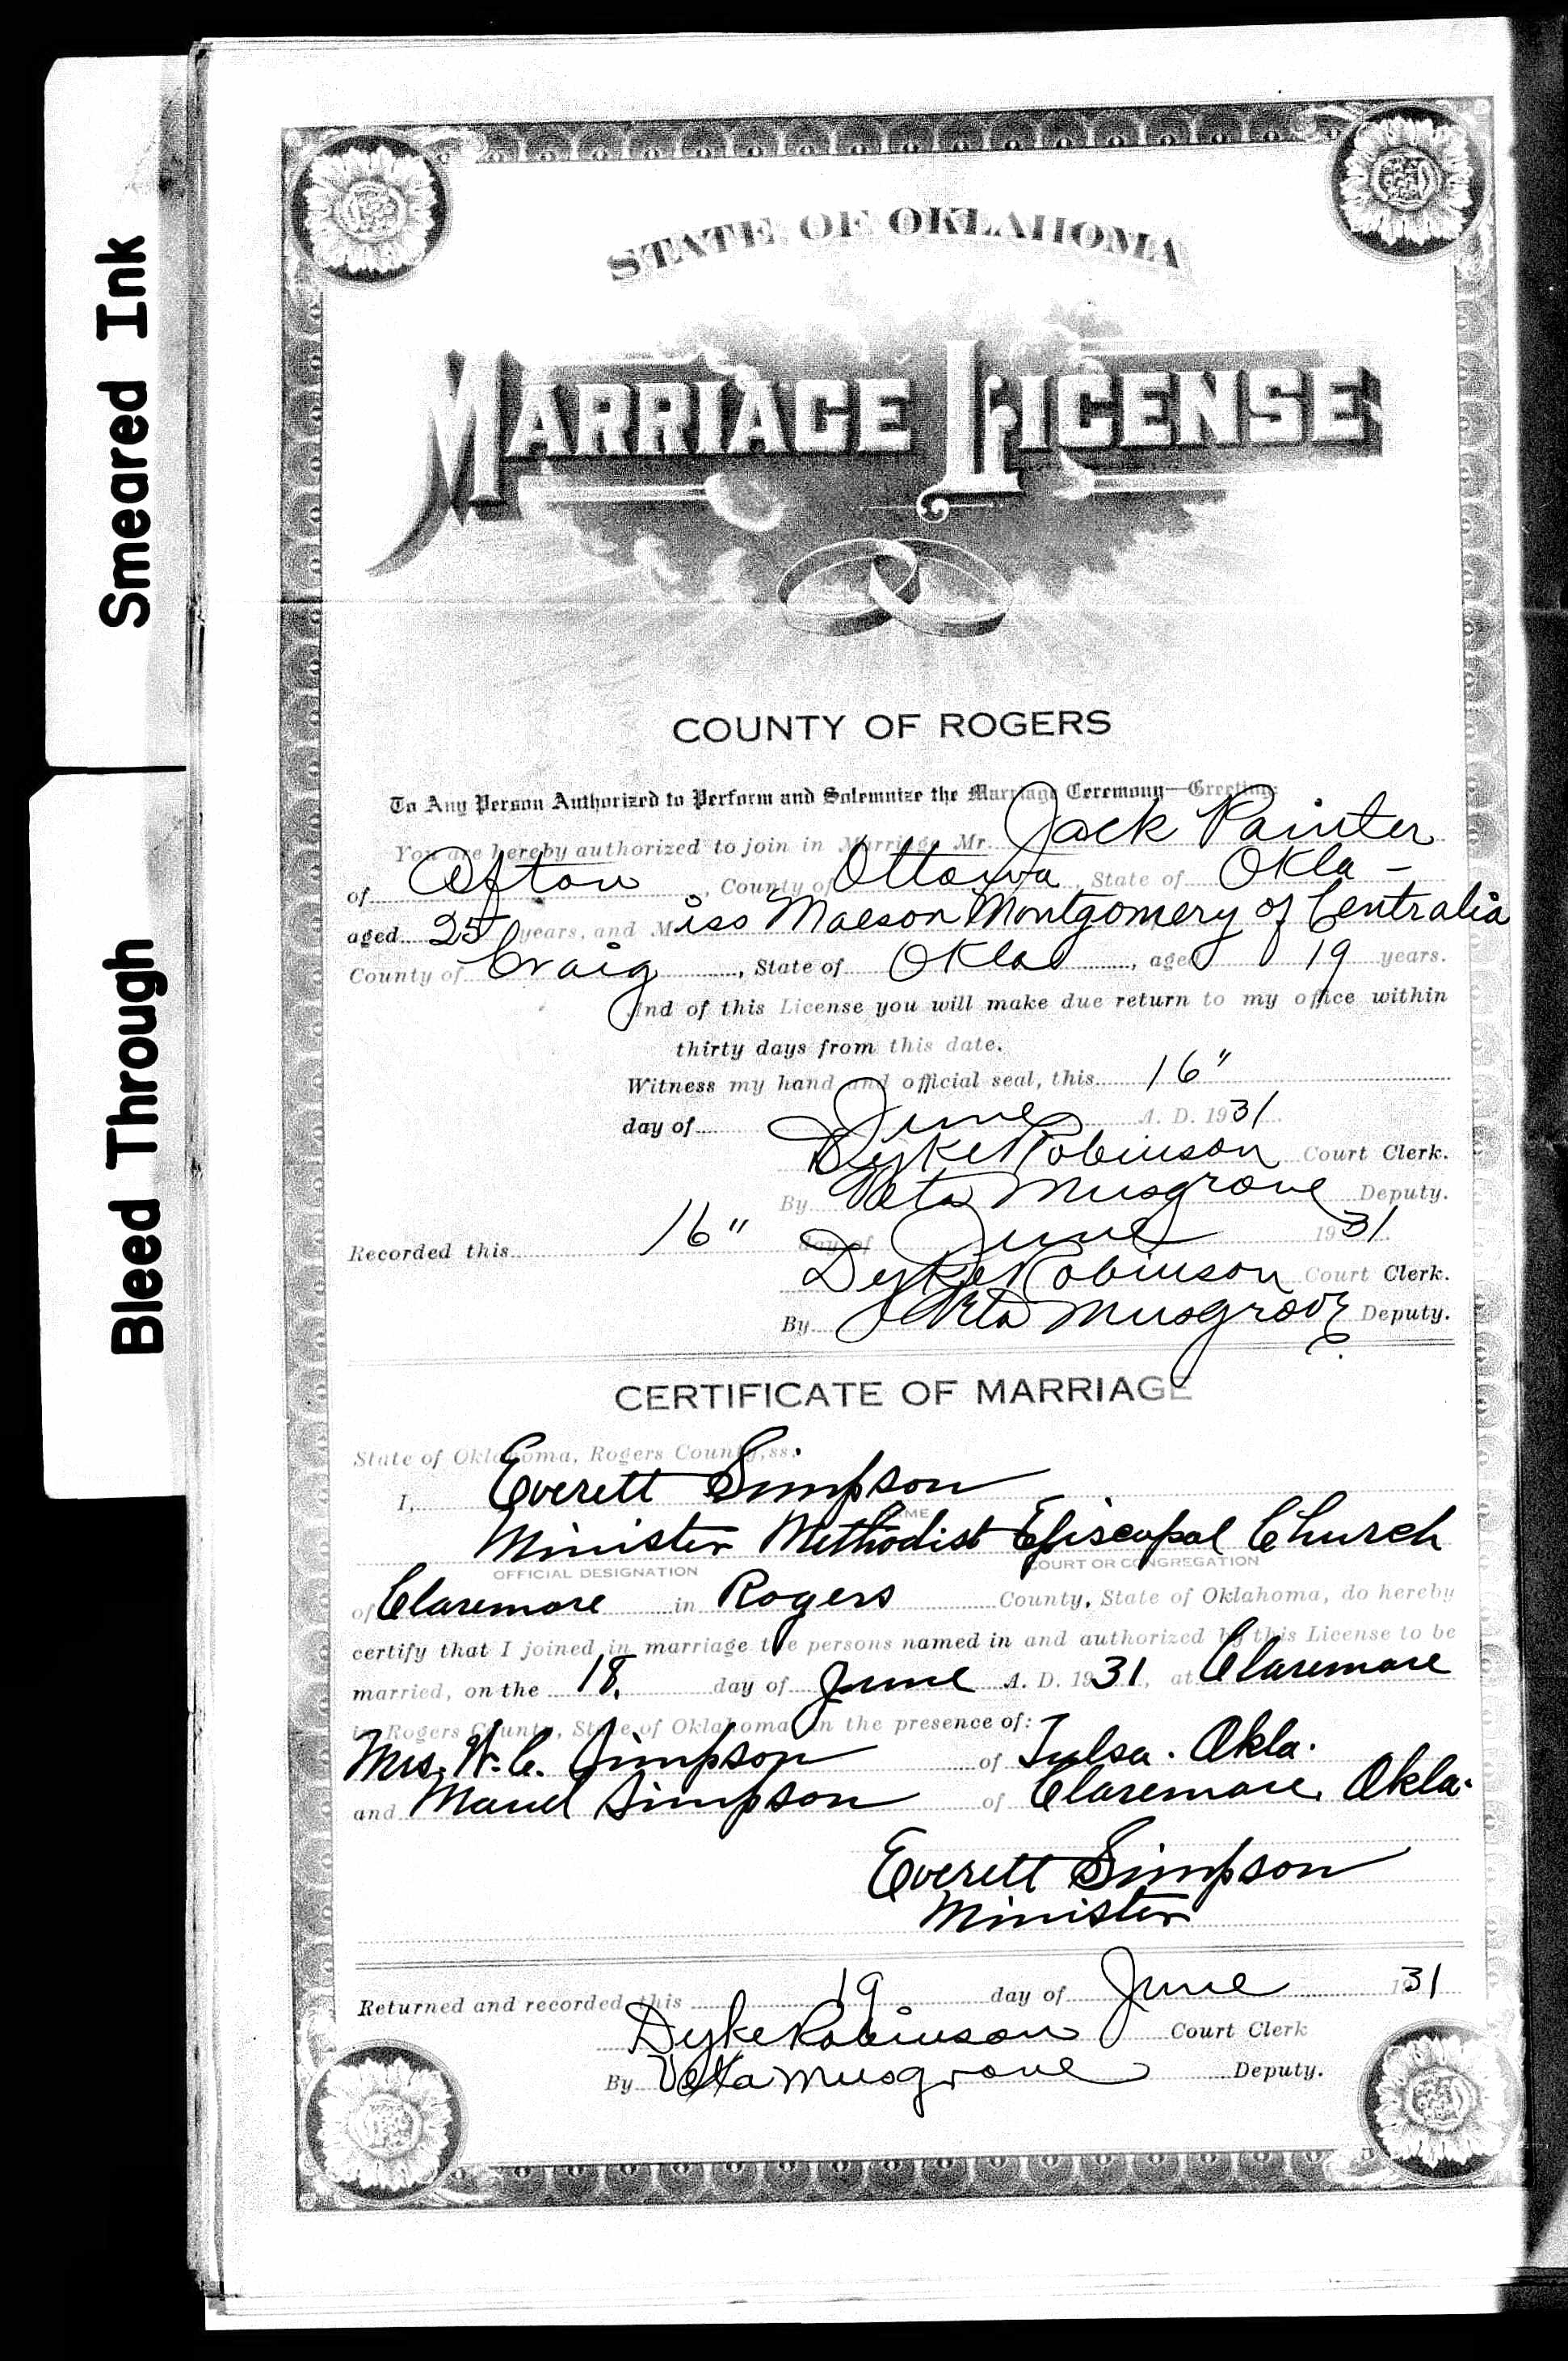 Smeared Ink
Bleed Through
STATE OF OKLAHOMA
MARRIAGE LICENSE
COUNTY OF ROGERS
To Any Person Authorized to Perform and Solemnize the Marriage Ceremony—Greeting:
You are hereby authorized to join in Marriage Mr. Jack Painter
of Afton, County of Ottowa, State of Okla -
aged 25 years, and Miss Maeson Montgomery of Centralia
County of Craig, State of Okla, aged 19 years.
And of this License you will make due return to my office within
thirty days from this date.
Witness my hand and official seal, this 16"
day of June A. D. 1931
Dyke Robinson Court Clerk.
By Veta Musgrove Deputy.
Recorded this 16" day of June 1931
Dyke Robinson Court Clerk.
By Veta Musgrove Deputy.
CERTIFICATE OF MARRIAGE
State of Oklahoma, Rogers County, ss:
I, Everett Simpson
NAME
Minister Methodist Episcopal Church
OFFICIAL DESIGNATION COURT OR CONGREGATION
of Claremore in Rogers County, State of Oklahoma, do hereby
certify that I joined in marriage the persons named in and authorized by this License to be
married, on the 18. day of June A. D. 1931, at Claremore
in Rogers County, State of Oklahoma in the presence of:
Mrs. W. C. Simpson of Tulsa. Okla.
and Maud Simpson of Claremore, Okla.
Everett Simpson
Minister
Returned and recorded this 19 day of June 1931
Dyke Robinson Court Clerk
By Veta Musgrove Deputy.